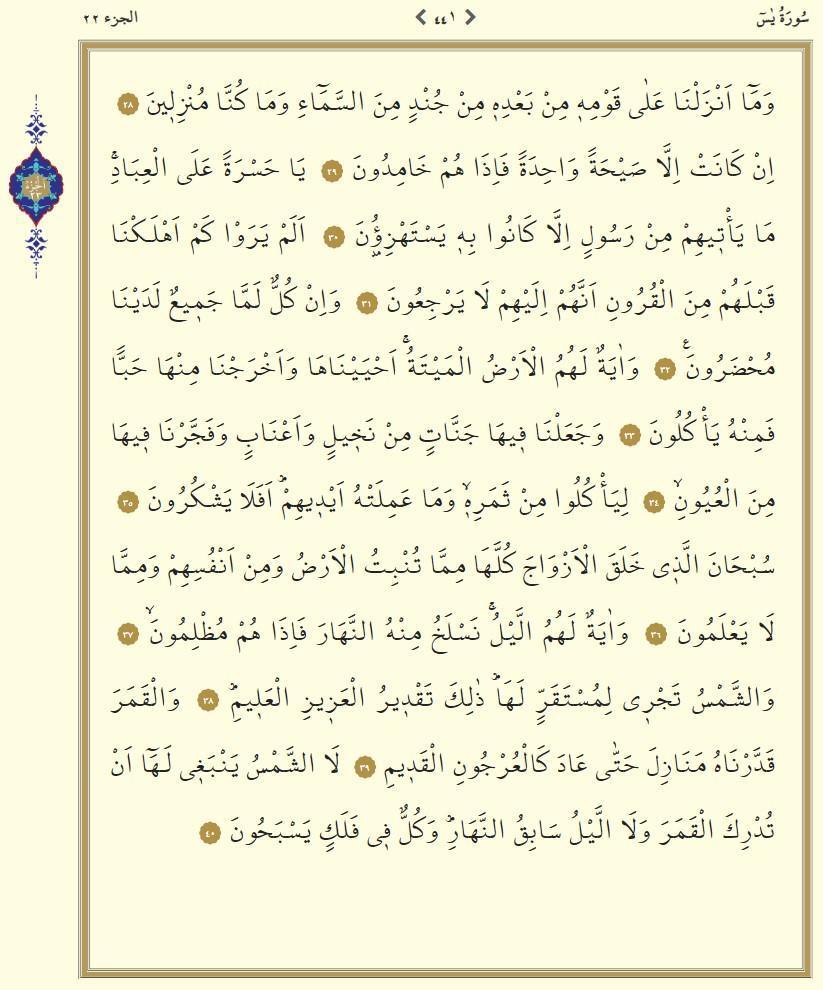 سُورَةُ يٰسٓ
٤٤١
الجزء ٢٢
وَمَٓا اَنْزَلْنَا عَلٰى قَوْمِه۪ مِنْ بَعْدِه۪ مِنْ جُنْدٍ مِنَ السَّمَٓاءِ وَمَا كُنَّا مُنْزِل۪ينَ ٢٨
اِنْ كَانَتْ اِلَّا صَيْحَةً وَاحِدَةً فَاِذَا هُمْ خَامِدُونَ ٢٩ يَا حَسْرَةً عَلَى الْعِبَادِۚ
مَا يَأْت۪يهِمْ مِنْ رَسُولٍ اِلَّا كَانُوا بِه۪ يَسْتَهْزِؤُ۫نَ ٣٠ اَلَمْ يَرَوْا كَمْ اَهْلَكْنَا
قَبْلَهُمْ مِنَ الْقُرُونِ اَنَّهُمْ اِلَيْهِمْ لَا يَرْجِعُونَ ٣١ وَاِنْ كُلٌّ لَمَّا جَم۪يعٌ لَدَيْنَا
مُحْضَرُونَ۟ ٣٢ وَاٰيَةٌ لَهُمُ الْاَرْضُ الْمَيْتَةُۚ اَحْيَيْنَاهَا وَاَخْرَجْنَا مِنْهَا حَبًّا
فَمِنْهُ يَأْكُلُونَ ٣٣ وَجَعَلْنَا ف۪يهَا جَنَّاتٍ مِنْ نَخ۪يلٍ وَاَعْنَابٍ وَفَجَّرْنَا ف۪يهَا
مِنَ الْعُيُونِۙ ٣٤ لِيَأْكُلُوا مِنْ ثَمَرِه۪ۙ وَمَا عَمِلَتْهُ اَيْد۪يهِمْۜ اَفَلَا يَشْكُرُونَ ٣٥
سُبْحَانَ الَّذ۪ى خَلَقَ الْاَزْوَاجَ كُلَّهَا مِمَّا تُنْبِتُ الْاَرْضُ وَمِنْ اَنْفُسِهِمْ وَمِمَّا
لَا يَعْلَمُونَ ٣٦ وَاٰيَةٌ لَهُمُ الَّيْلُۚ نَسْلَخُ مِنْهُ النَّهَارَ فَاِذَا هُمْ مُظْلِمُونَۙ ٣٧
وَالشَّمْسُ تَجْر۪ى لِمُسْتَقَرٍّ لَهَاۜ ذٰلِكَ تَقْد۪يرُ الْعَز۪يزِ الْعَل۪يمِۜ ٣٨ وَالْقَمَرَ
قَدَّرْنَاهُ مَنَازِلَ حَتّٰى عَادَ كَالْعُرْجُونِ الْقَد۪يمِ ٣٩ لَا الشَّمْسُ يَنْبَغ۪ى لَهَٓا اَنْ
تُدْرِكَ الْقَمَرَ وَلَا الَّيْلُ سَابِقُ النَّهَارِۜ وَكُلٌّ ف۪ى فَلَكٍ يَسْبَحُونَ ٤٠
الجزء
٢٣